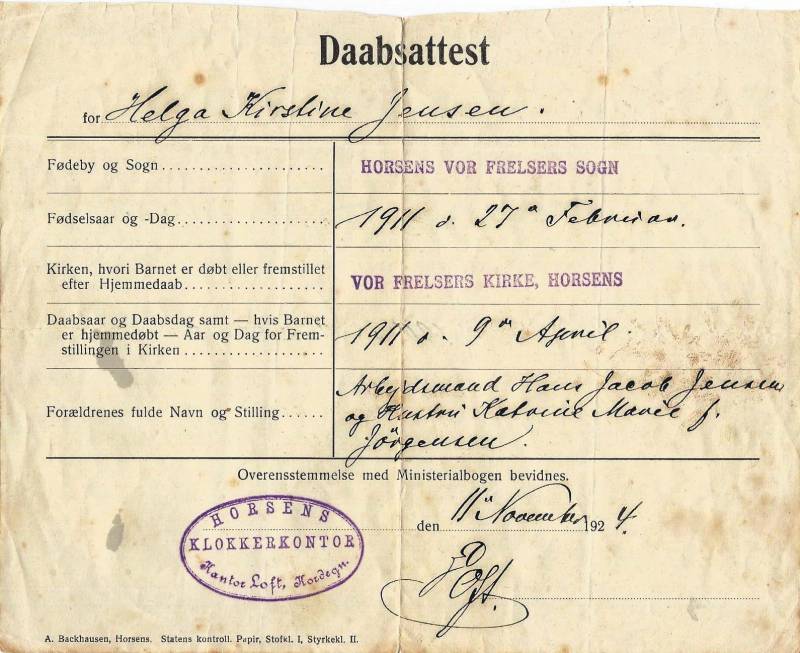 Daabsattest
for Helga Kirstine Jensen.
Fødeby og Sogn
HORSENS VOR FRELSERS SOGN
Fødselsaar og -Dag
1911 d. 27de Februar.
Kirken, hvori Barnet er døbt eller fremstillet
efter Hjemmedaab
VOR FRELSERS KIRKE, HORSENS
Daabsaar og Daabsdag samt — hvis Barnet
er hjemmedøbt — Aar og Dag for Frem-
stillingen i Kirken
1911 d. 9de April.
Forældrenes fulde Navn og Stilling
Arbejdsmand Hans Jacob Jensen
og Hustru Katrine Marie f.
Jörgensen.
Overensstemmelse med Ministerialbogen bevidnes.
den 11te November 1924.
HORSENS
KLOKKERKONTOR
Kantor Loft, Hordegn.
Loft.
A. Backhausen, Horsens. Statens kontroll. Papir, Stofkl. I, Styrkekl. II.